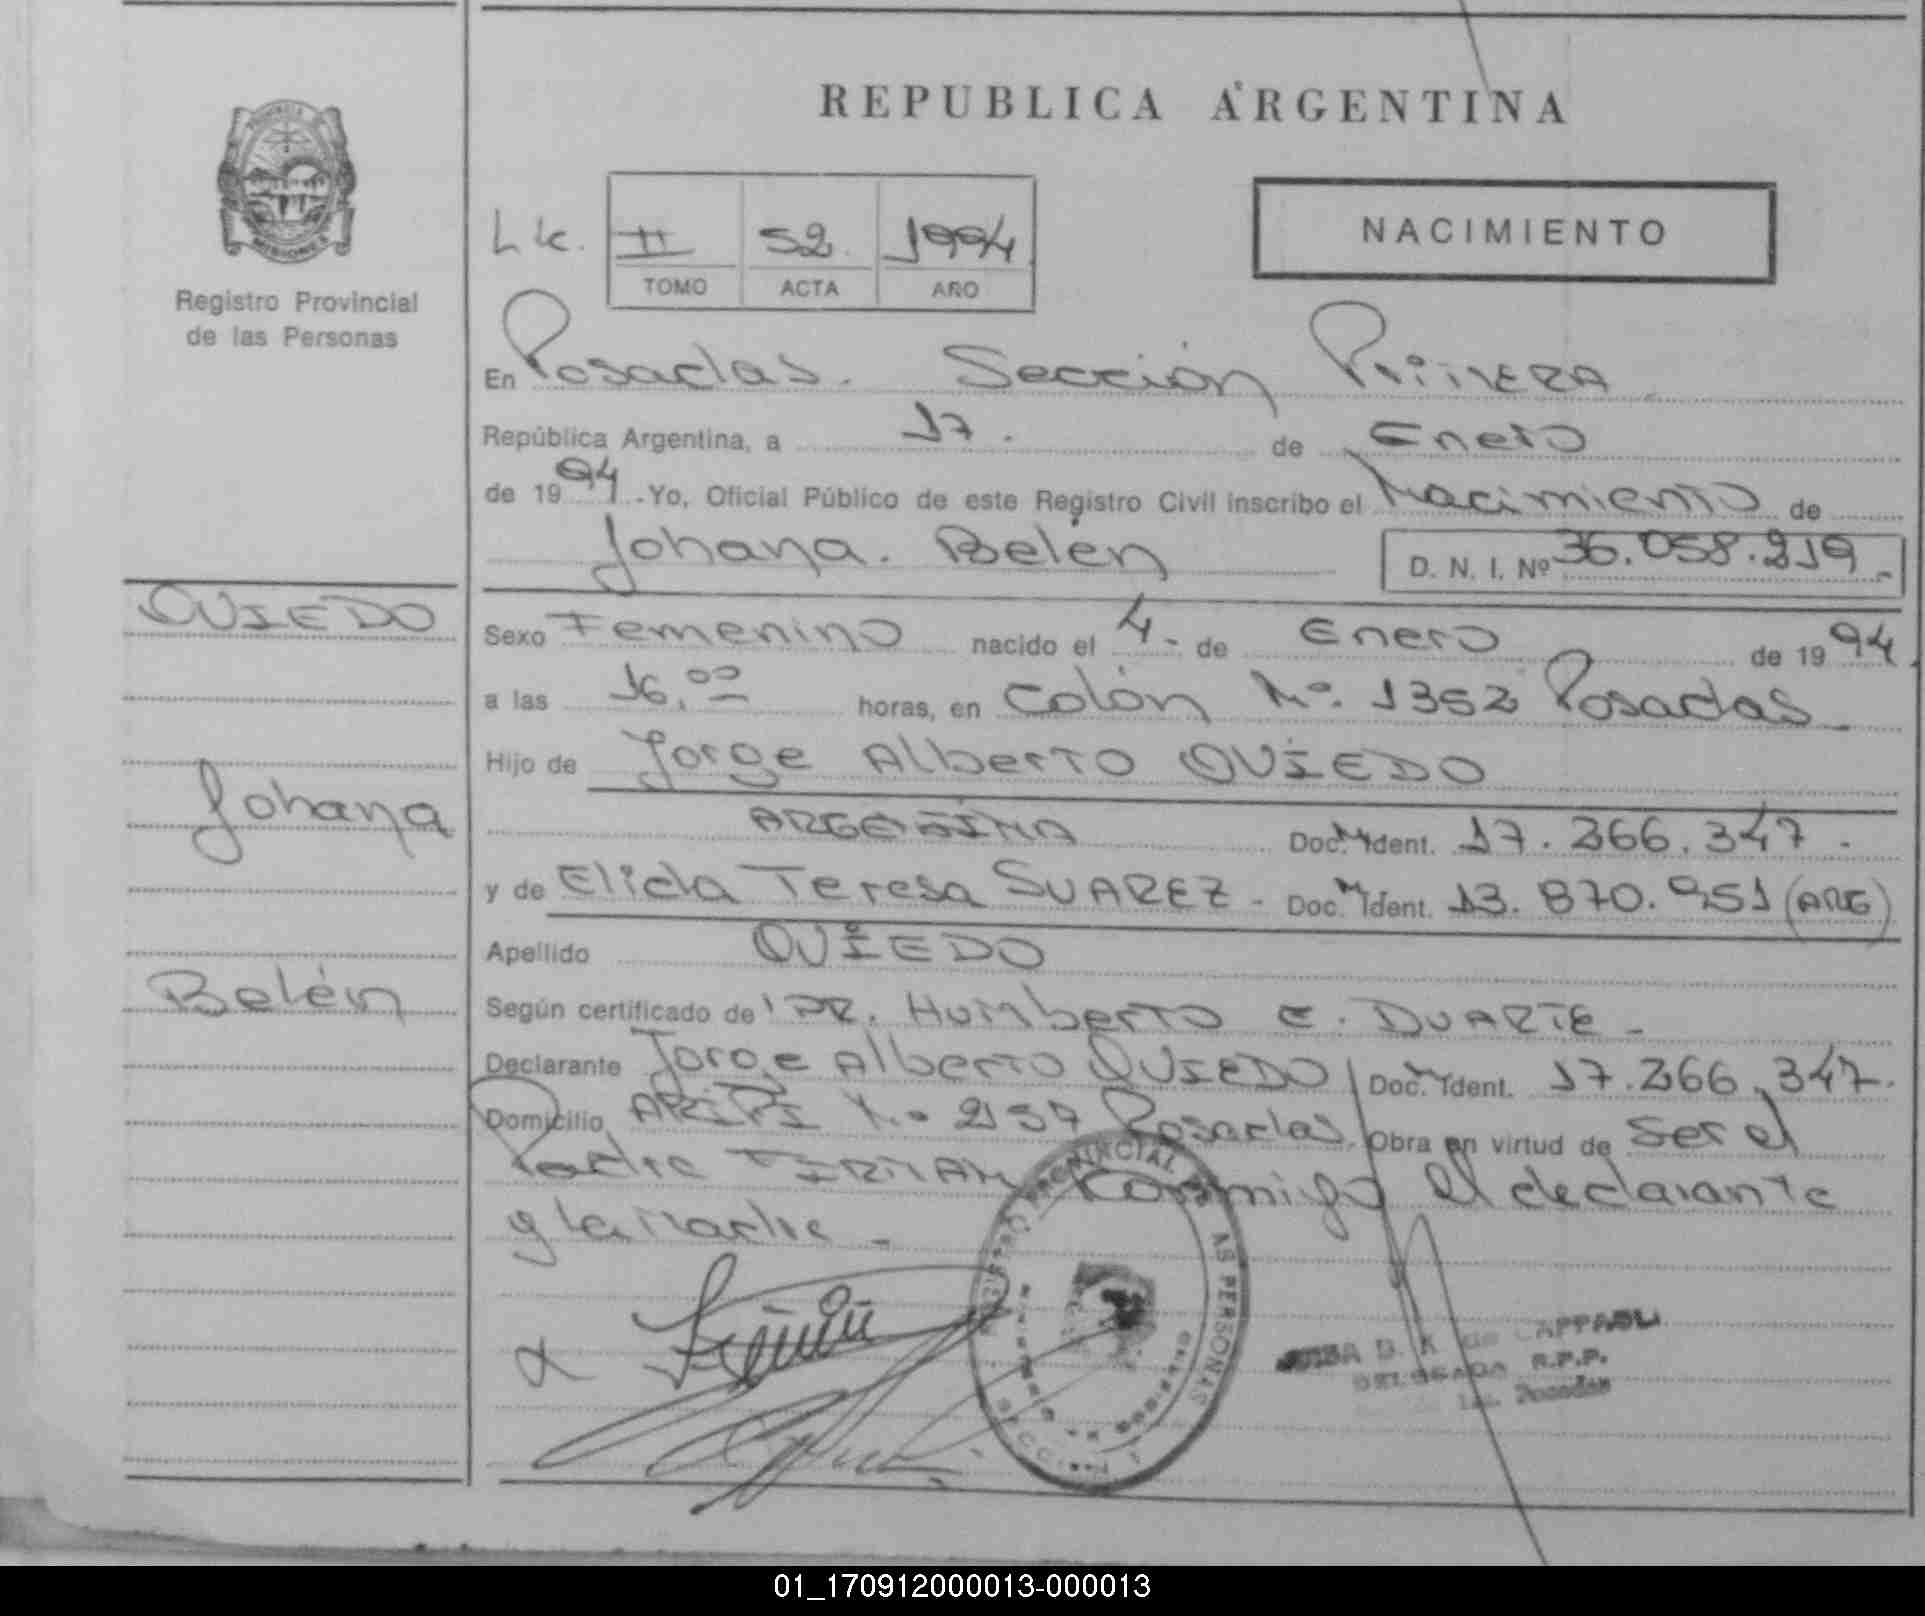 REPUBLICA ARGENTINA
NACIMIENTO
Registro Provincial
de las Personas
II 52 1994
TOMO ACTA AÑO
En Posadas. Sección Primera
República Argentina, a 17. de Enero
de 1994.-Yo, Oficial Público de este Registro Civil inscribo el Nacimiento de
Johana. Belén D. N. I. Nº 36.058.219.-
OVIEDO
Johana
Belén
Sexo Femenino nacido el 4- de Enero de 1994.
a las 16,00 horas, en Colón Nº. 1352 Posadas-
Hijo de Jorge Alberto OVIEDO
ARGENTINA Doc. Ident. 17.266.347.
y de Elida Teresa SUAREZ - Doc. Ident. 13.870.951 (ARG)
Apellido OVIEDO
Según certificado de DR. Humberto E. DUARTE-
Declarante Jorge Alberto OVIEDO Doc. Ident. 17.266.347.
Domicilio Nº 2157 Posadas Obra en virtud de ser el
Padre FIRMAN conmigo el declarante
y la Madre-
REGISTRO PROVINCIAL AS PERSONAS
DELEGADA R.P.P.
Posadas
01_170912000013-000013